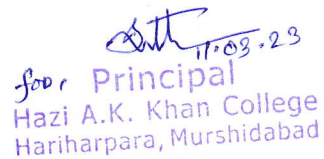 11.03.23
for, Principal
Hazi A.K. Khan College
Hariharpara, Murshidabad